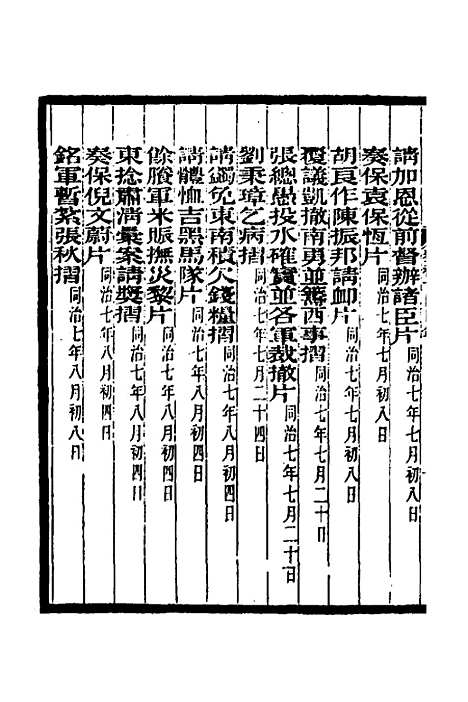 請加恩從前督辦諸臣片 同治七年七月初八日
奏保袁保恆片 同治七年七月初八日
胡良作陳振邦請卹片 同治七年七月初八日
覆議凱撤南勇並籌西事摺 同治七年七月二十日
張總愚投水確實並各軍裁撤片 同治七年七月二十日
劉秉璋乞病摺 同治七年七月二十四日
請蠲免東南積欠錢糧摺 同治七年八月初四日
請體恤吉黑馬隊片 同治七年八月初四日
餘賸軍米賑撫災黎片 同治七年八月初四日
東捻肅清彙案請獎摺 同治七年八月初四日
奏保倪文蔚片 同治七年八月初四日
銘軍暫紮張秋摺 同治七年八月初八日